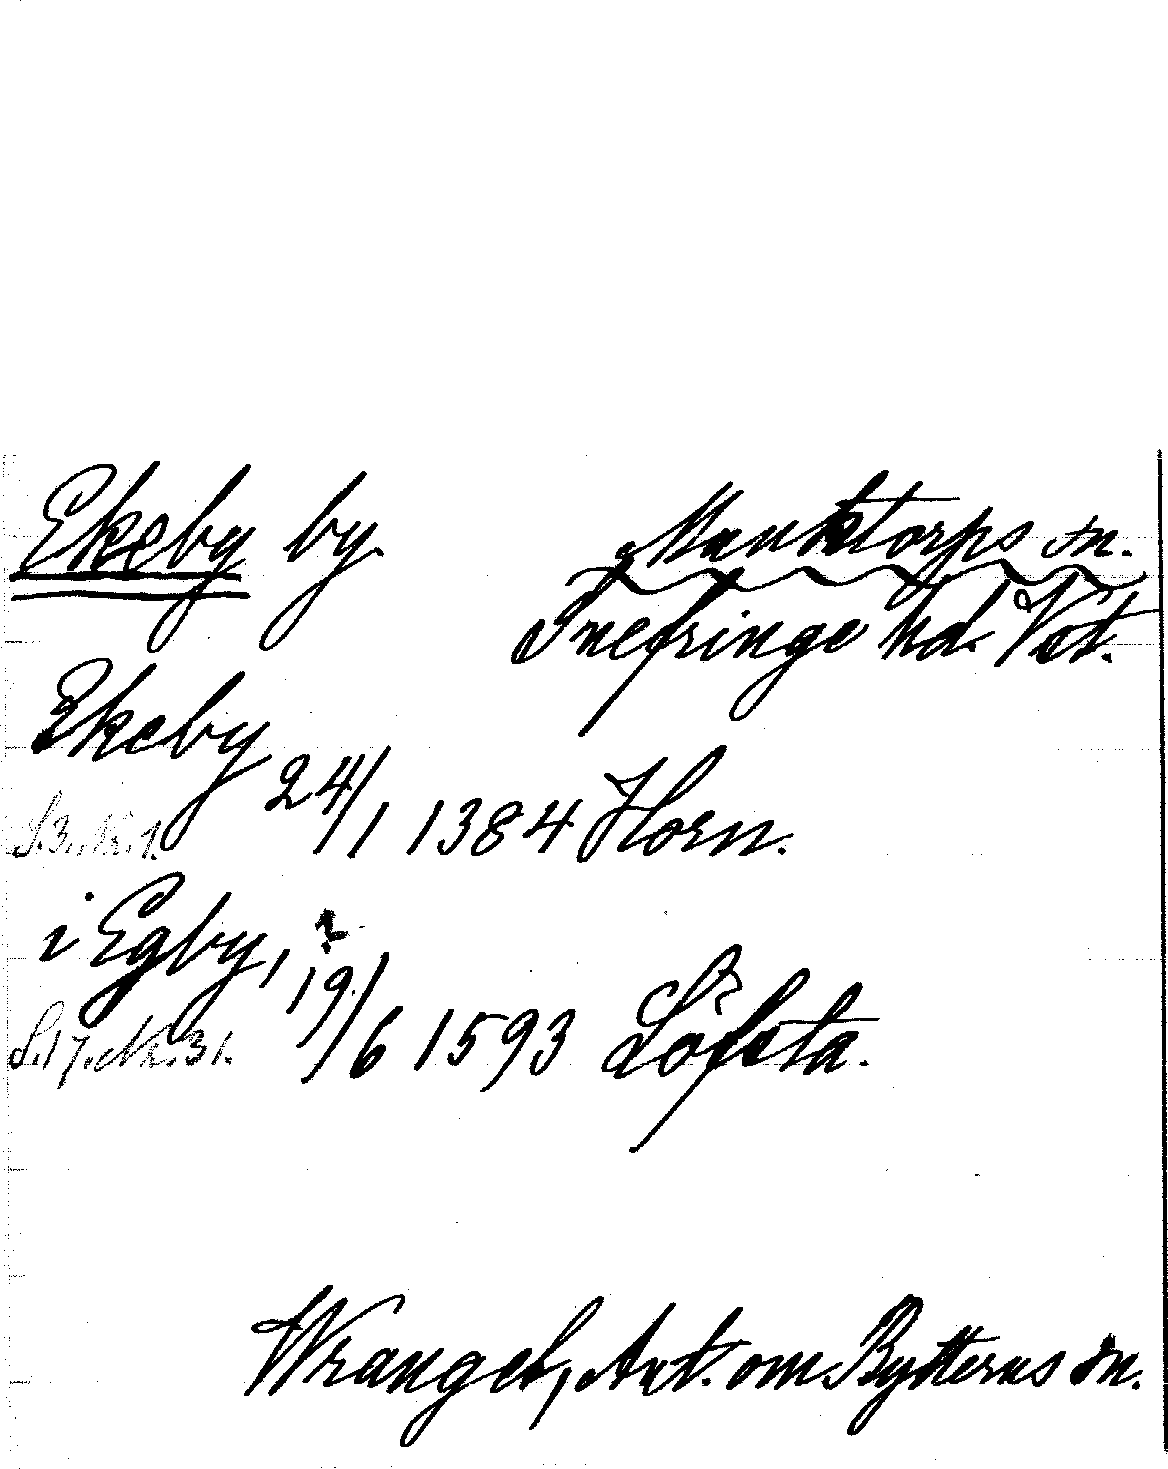 Ekeby by. Munktorps sn.
Snefringe hd. Vst.
Ekeby 24/1 1384 Horn.
S.3. Nr. 1.
i Egby, 19/6 1593 Löfsta.
S.17. Nr. 31.
Wrangel, Ant. om Rytterns sn.